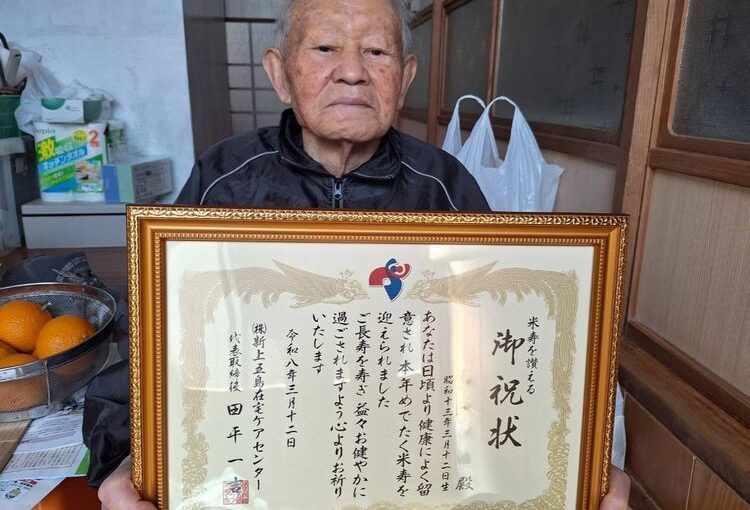 米寿を讃える
御祝状
昭和十三年三月十二日生
殿
あなたは日頃より健康によく留
意され本年めでたく米寿を
迎えられました
ご長寿を寿ぎ益々お健やかに
過ごされますよう心よりお祈り
いたします
令和八年三月十二日
㈱新上五島在宅ケアセンター
代表取締役 田平一吉
激吸収
キッチンタオル
2